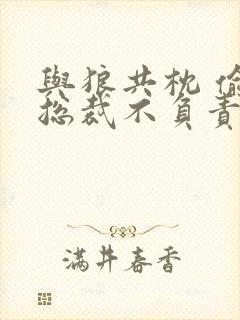 與狼共枕 偷
总裁不負責
满井春香